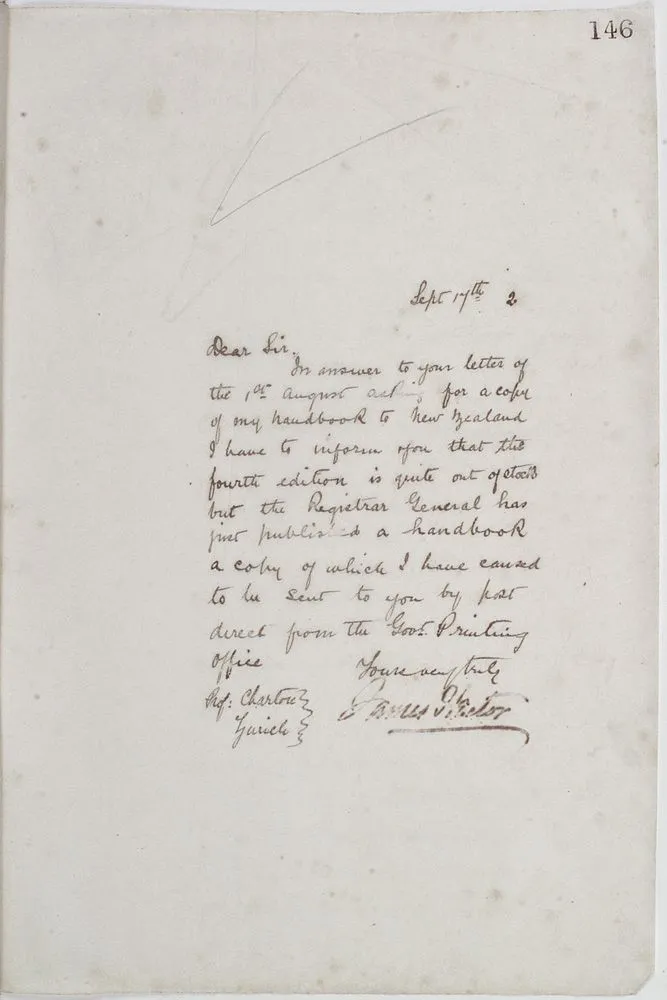 146
Sept 17th 2
Dear Sir.
In answer to your letter of
the 1st August asking for a copy
of my handbook to New Zealand
I have to inform you that the
fourth edition is quite out of stock
but the Registrar General has
just published a handbook
a copy of which I have caused
to be sent to you by post
direct from the Govt. Printing
office
Yours very truly
Prof: James Hector
Zurich